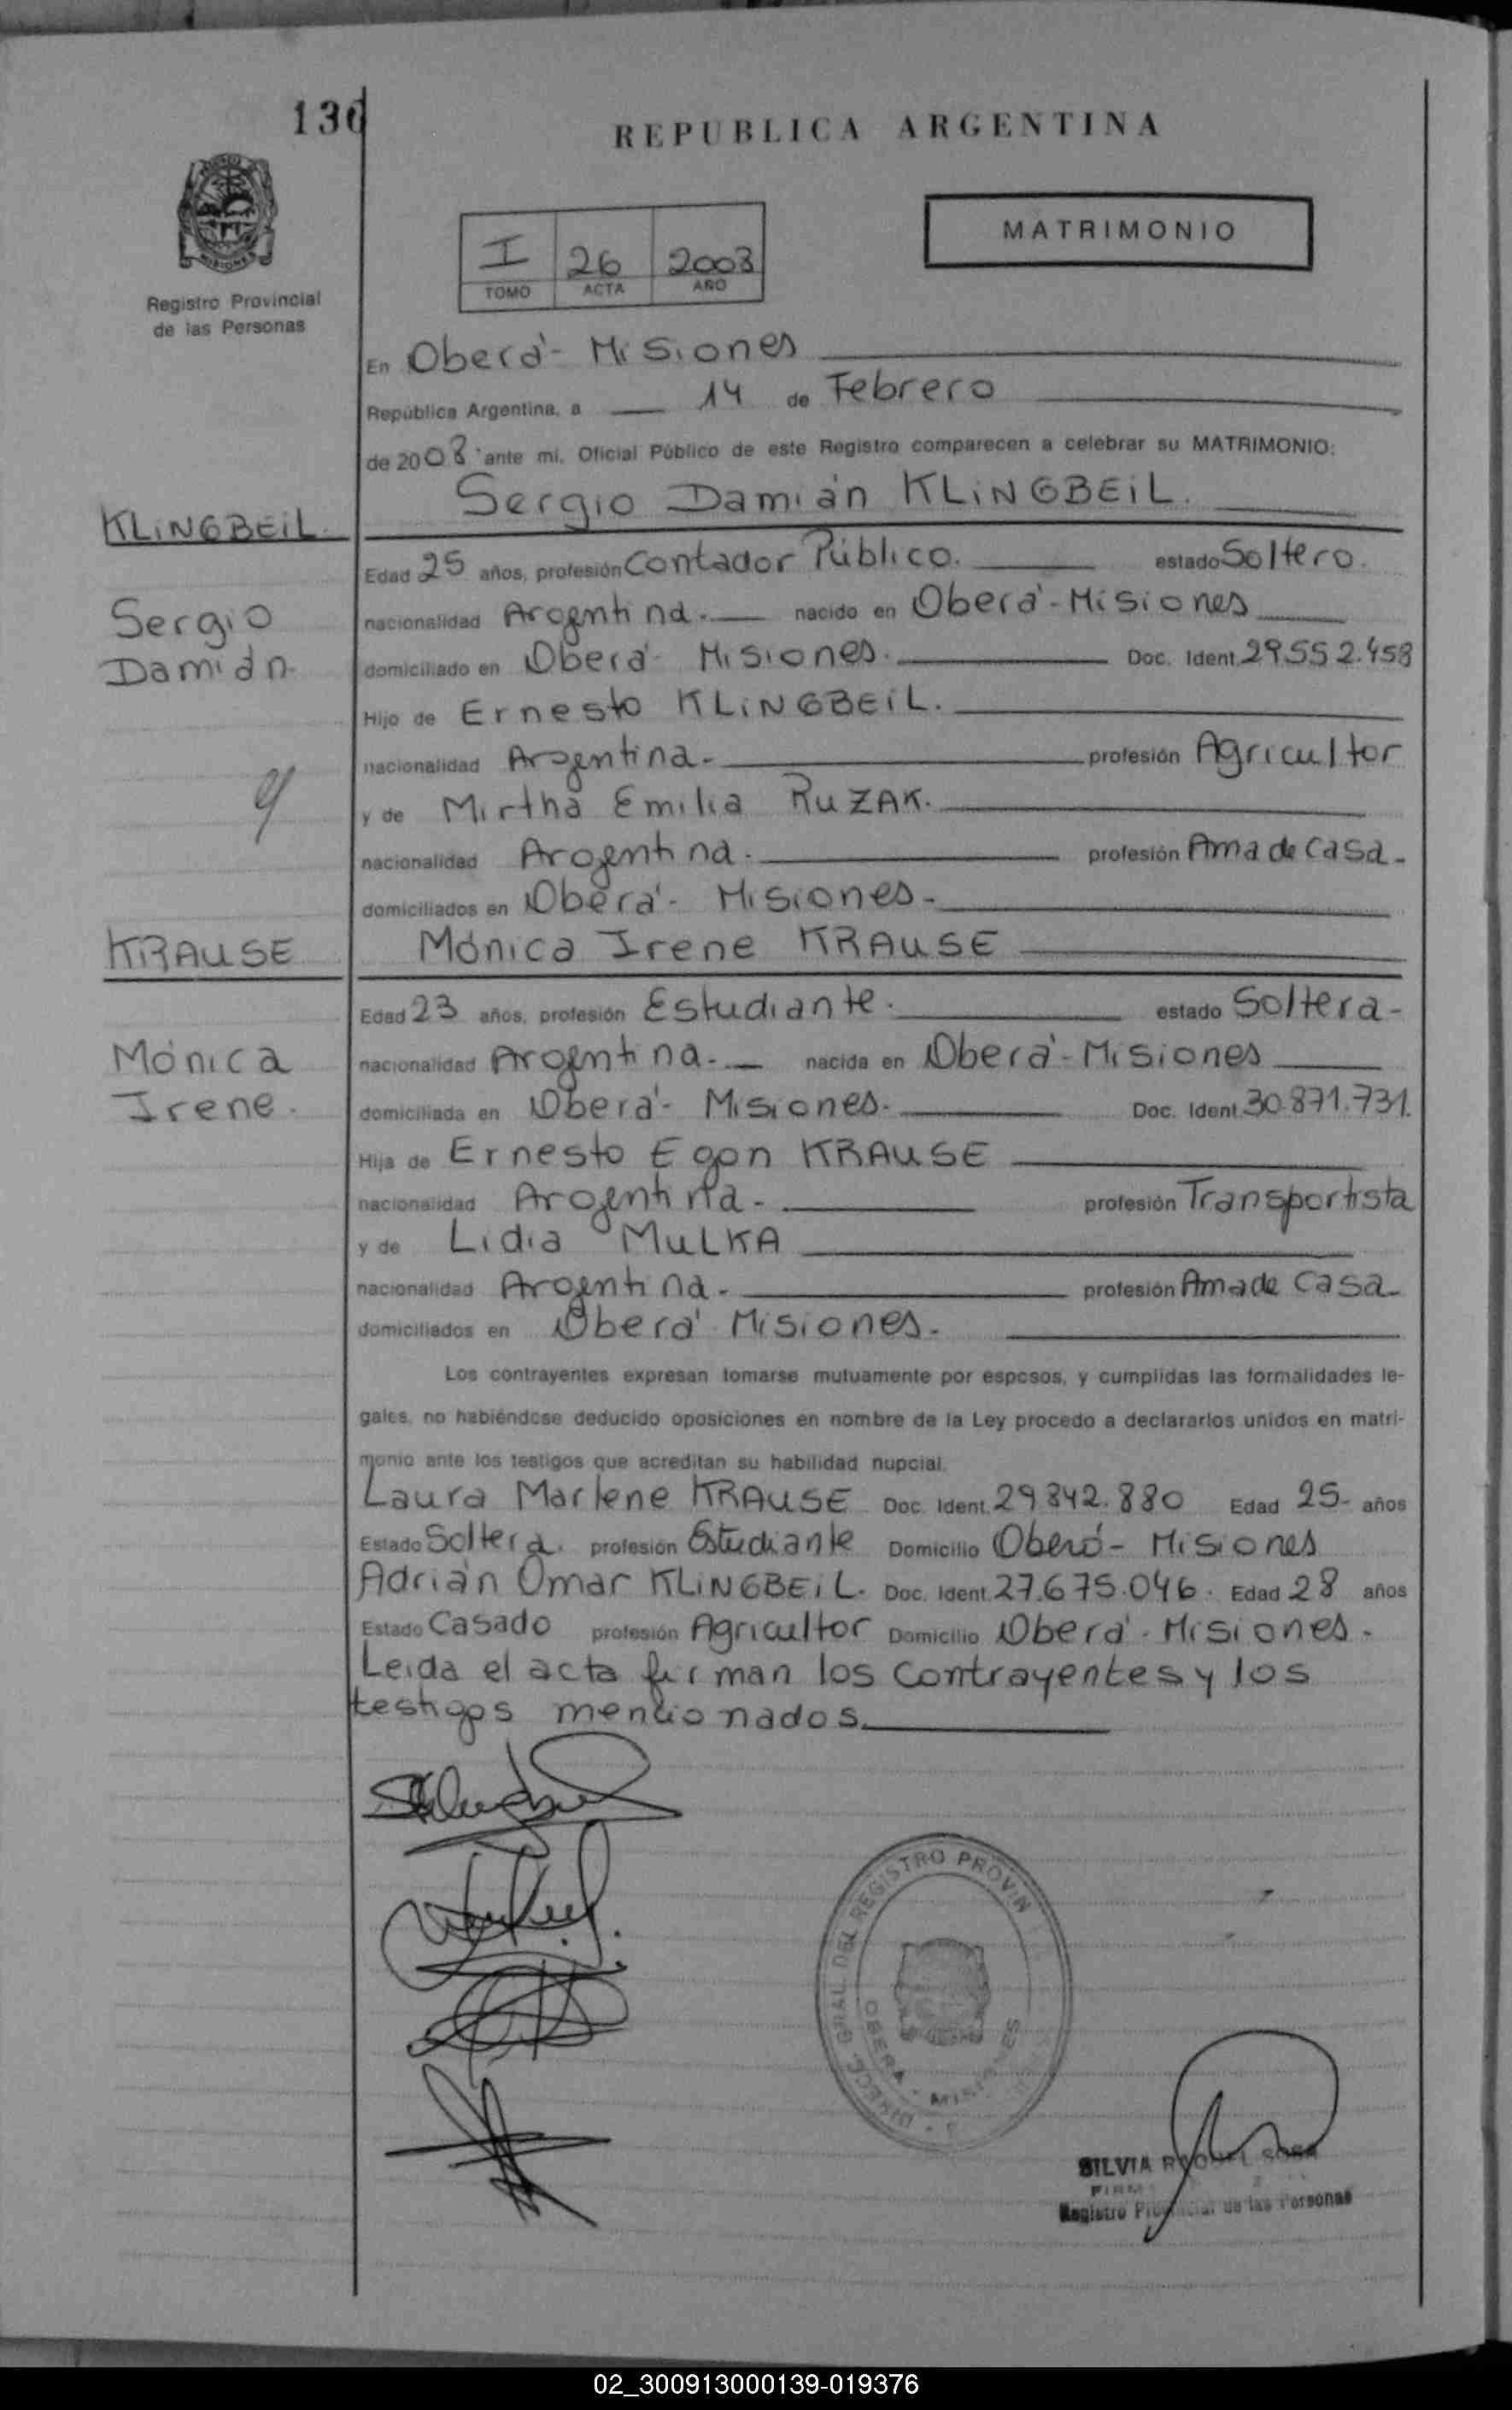 136
REPUBLICA ARGENTINA
MATRIMONIO
I 26 2008
TOMO ACTA AÑO
MISIONES
Registro Provincial
de las Personas
En Oberá - Misiones
República Argentina, a 14 de Febrero
de 2008 ante mi, Oficial Público de este Registro comparecen a celebrar su MATRIMONIO:
Sergio Damián KLiNGBEiL.
KLiNGBEiL.
Sergio
Damián.
Edad 25 años, profesión Contador Público. estado Soltero.
nacionalidad Argentina. nacido en Oberá - Misiones
domiciliado en Oberá - Misiones. Doc. Ident. 29.552.458
Hijo de Ernesto KLiNGBEiL.
nacionalidad Argentina. profesión Agricultor
y
y de Mirtha Emilia RUZAK.
nacionalidad Argentina. profesión Ama de Casa -
domiciliados en Oberá - Misiones -
KRAUSE
Mónica Irene KRAUSE
Mónica
Irene.
Edad 23 años, profesión Estudiante. estado Soltera -
nacionalidad Argentina. nacida en Oberá - Misiones
domiciliada en Oberá - Misiones. Doc. Ident. 30.871.731.
Hija de Ernesto Egon KRAUSE
nacionalidad Argentina - profesión Transportista
y de Lidia MULKA
nacionalidad Argentina - profesión Ama de Casa -
domiciliados en Oberá Misiones -
Los contrayentes expresan tomarse mutuamente por esposos, y cumplidas las formalidades le-
gales, no habiéndose deducido oposiciones en nombre de la Ley procedo a declararlos unidos en matri-
monio ante los testigos que acreditan su habilidad nupcial.
Laura Marlene KRAUSE Doc. Ident. 29.842.880 Edad 25 - años
Estado Soltera. profesión Estudiante Domicilio Oberá - Misiones
Adrián Omar KLiNGBEiL. Doc. Ident. 27.675.046. Edad 28 años
Estado Casado profesión Agricultor Domicilio Oberá - Misiones -
Leida el acta firman los contrayentes y los
testigos mencionados.
DIRECC. GRAL. DEL REGISTRO PROVIN
OBERA - MISIONES
SILVIA RAQUEL SOSA
Registro Provincial de las Personas
02_300913000139-019376